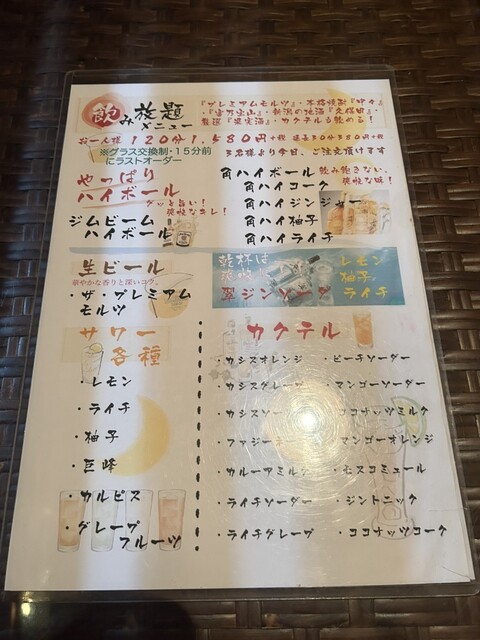 飲み放題
メニュー
『プレミアムモルツ』・本格焼酎『中々』
・『富乃宝山』・新潟の地酒『久保田』・
厳選『果実酒』・カクテルも飲める!
お一人様 120分1,580円+税 延長30分380円+税
※グラス交換制・15分前
にラストオーダー
2名様より今日、ご注文頂けます
やっぱり
ハイボール
グッと旨い!
爽快なキレ!
ジムビーム
ハイボール
角ハイボール 飲み飽きない、
爽快な味!
角ハイコーク
角ハイジンジャー
角ハイ柚子
角ハイライチ
生ビール
華やかな香りと深いコク。
・ザ・プレミアム
モルツ
乾杯は
翠ジンソーダ
レモン
柚子
ライチ
サワー
各種
・レモン
・ライチ
・柚子
・巨峰
・カルピス
・グレープ
フルーツ
カクテル
・カシスオレンジ
・カシスグレープ
・カシスソーダー
・ファジーネーブル
・カルーアミルク
・ライチソーダー
・ライチグレープ
・ピーチソーダー
・マンゴーソーダー
・ココナッツミルク
・マンゴーオレンジ
・モスコミュール
・ジントニック
・ココナッツコーク